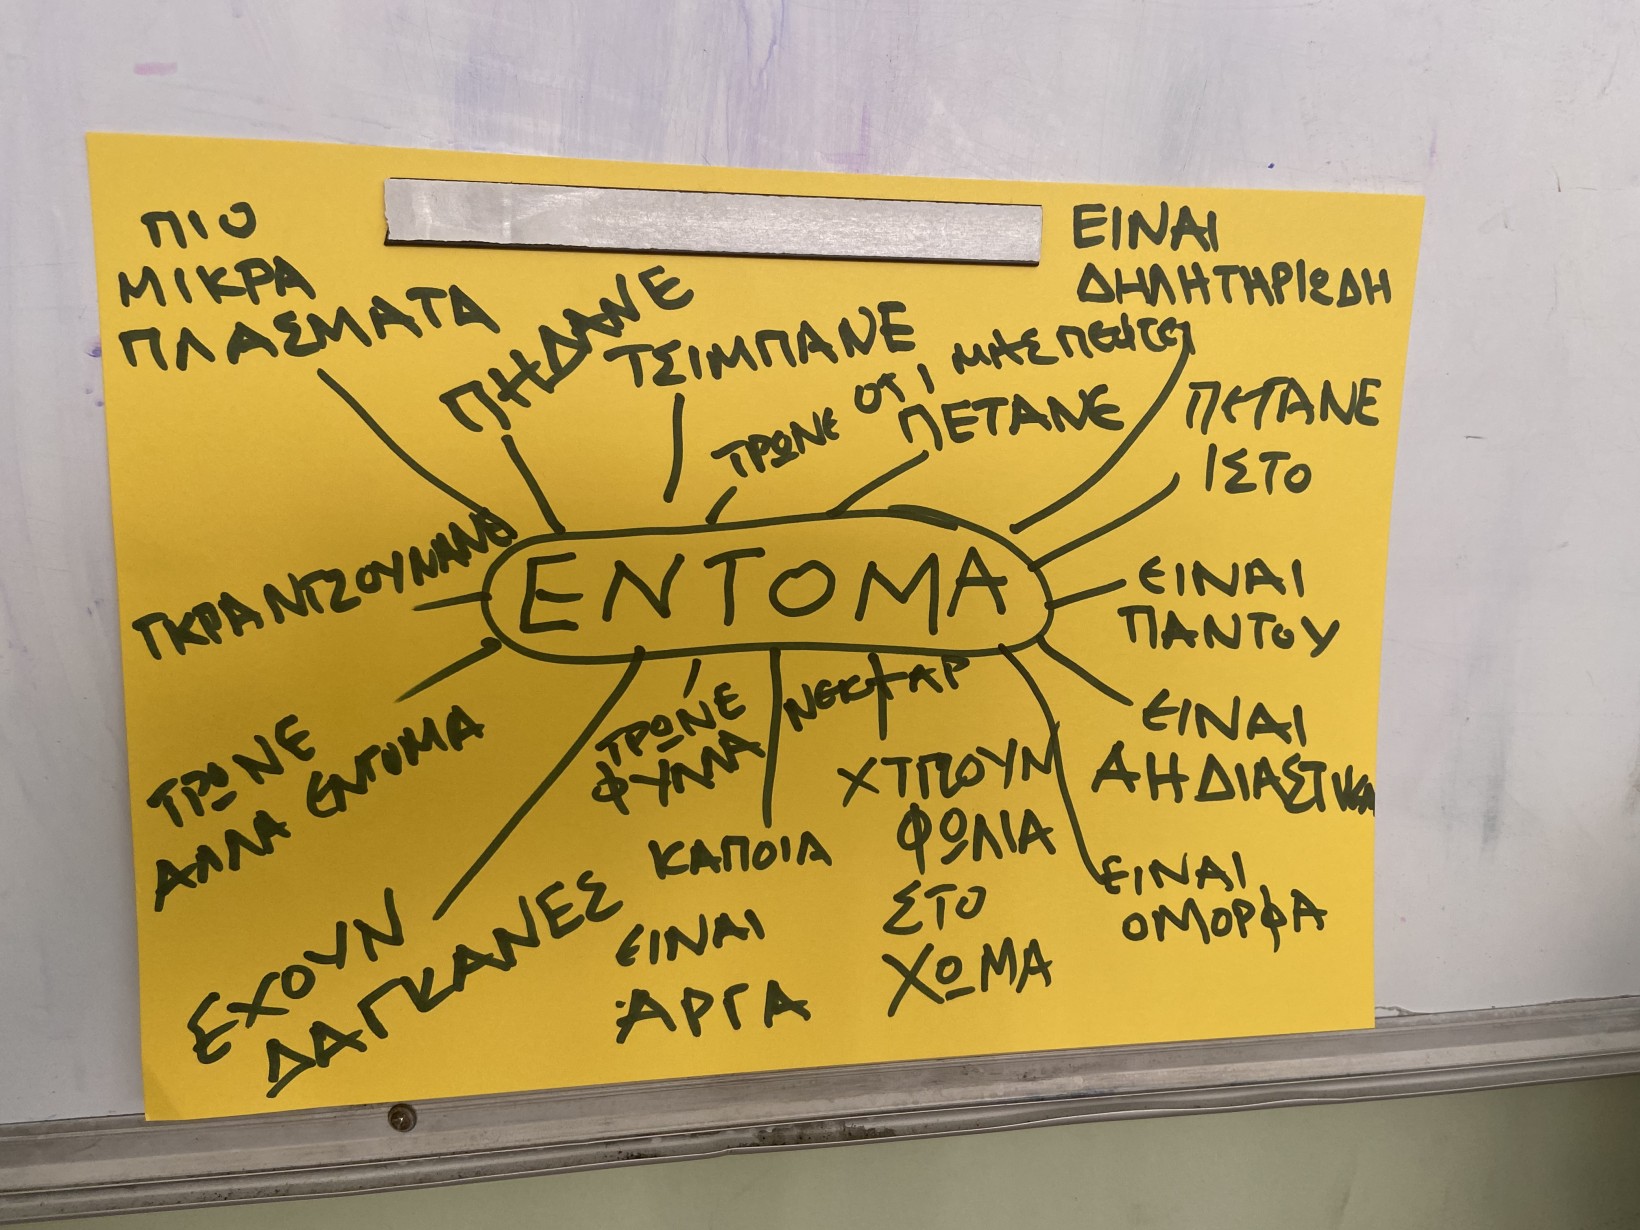 ΠΙΟ
ΜΙΚΡΑ
ΠΛΑΣΜΑΤΑ
ΠΗΔΑΝΕ
ΤΣΙΜΠΑΝΕ
ΤΡΩΝΕ ΟΤΙ
ΠΕΤΑΝΕ
ΕΙΝΑΙ
ΔΗΛΗΤΗΡΙΩΔΗ
ΠΕΤΑΝΕ
ΙΣΤΟ
ΓΚΡΑΝΤΖΟΥΝΑΝΕ
ΕΝΤΟΜΑ
ΕΙΝΑΙ
ΠΑΝΤΟΥ
ΤΡΩΝΕ
ΑΛΛΑ ΕΝΤΟΜΑ
ΕΧΟΥΝ
ΔΑΓΚΑΝΕΣ
ΤΡΩΝΕ ΝΕΚΤΑΡ
ΚΑΠΟΙΑ
ΕΙΝΑΙ
ΑΡΓΑ
ΧΤΠΟΥΝ
ΦΩΛΙΑ
ΣΤΟ
ΧΩΜΑ
ΕΙΝΑΙ
ΑΗΔΙΑΣΤΙΚΑ
ΕΙΝΑΙ
ΟΜΟΡΦΑ